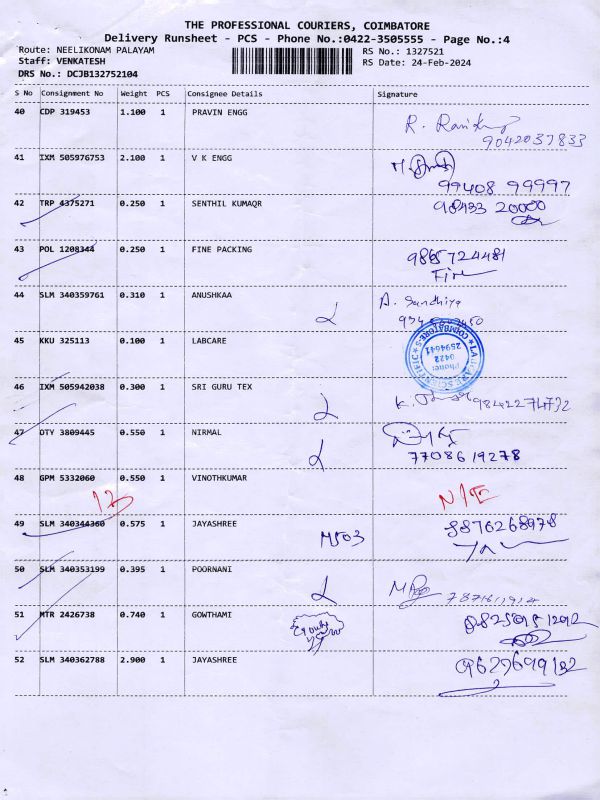 THE PROFESSIONAL COURIERS, COIMBATORE
Delivery Runsheet - PCS - Phone No.:0422-3505555 - Page No.:4
Route: NEELIKONAM PALAYAM
RS No.: 1327521
Staff: VENKATESH
RS Date: 24-Feb-2024
DRS No.: DCJB132752104
S No Consignment No Weight PCS Consignee Details Signature
40 CDP 319453 1.100 1 PRAVIN ENGG
9042037833
41 IXM 505976753 2.100 1 V K ENGG
99408 99997
42 TRP 4375271 0.250 1 SENTHIL KUMAQR
20000
43 POL 1208344 0.250 1 FINE PACKING 9865724481
44 SLM 340359761 0.310 1 ANUSHKAA A. Sandhiya
45 KKU 325113 0.100 1 LABCARE
COIMBATORE
Phone:
0422
2594641
46 IXM 505942038 0.300 1 SRI GURU TEX 9842274732
47 DTY 3809445 0.550 1 NIRMAL
7708619278
48 GPM 5332060 0.550 1 VINOTHKUMAR
13 N/E
49 SLM 340344360 0.575 1 JAYASHREE 8876268978
50 SLM 340353199 0.395 1 POORNANI
51 MTR 2426738 0.740 1 GOWTHAMI
52 SLM 340362788 2.900 1 JAYASHREE